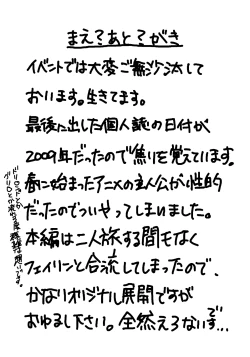 まえ?あと?がき
イベントでは大変ご無沙汰して
おります。生きてます。
最後に出した個人誌の日付が
2009年だったので焦りを覚えています。
春に始まったアニメの主人公が性的
だったのでついやってしまいました。
本編は二人旅する間もなく
フェイリンと合流してしまったので、
かなりオリジナル展開ですが
おゆるし下さい。全然えろないです…